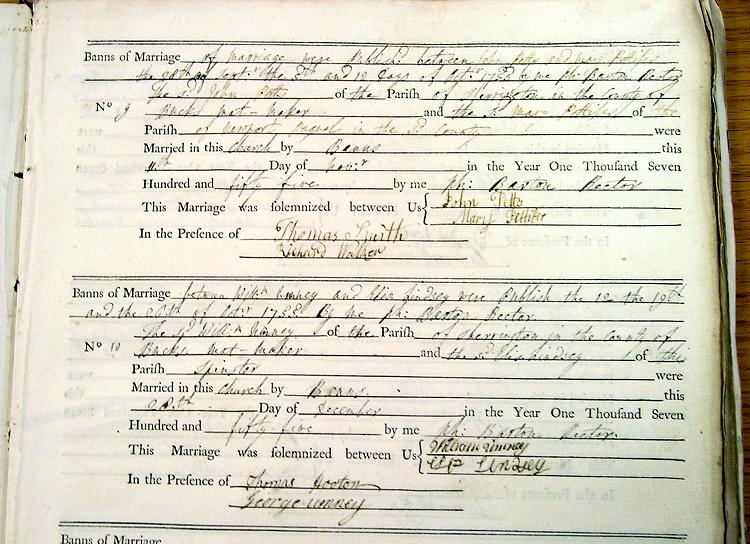 Banns of Marriage of marriage were Publish: between John Petts and Mary Pettifer
the 28th of Sept.r the 5th and 12 Days of Oct.r 1755 by me Ph: Barton Rector
The sd John Petts of the Parish of Sherrington in the County of
No 9 Bucks mat-maker and the sd Mary Pettifer of the
Parish of newport pagnel in the sd County were
Married in this Church by Banns this
11th Day of Nov.r in the Year One Thousand Seven
Hundred and fifty five by me Ph: Barton Rector
This Marriage was solemnized between Us John Petts
Mary Pettifer
In the Presence of Thomas Smith
Richard Walker
Banns of Marriage between Willm Umney and Eliz Lindsey were Publish the 12 the 19th
and the 26th of Oct.r 1755 By me Ph: Barton Rector
The sd Willm Umney of the Parish of Sherrington in the County of
No 10 Bucks mat-maker and the sd Eliz Lindsey of this
Parish Spinster were
Married in this Church by Banns this
28th Day of December in the Year One Thousand Seven
Hundred and fifty five by me Ph: Barton Rector
This Marriage was solemnized between Us William Umney
Lindsey
In the Presence of Thomas Hooton
George Umney
Banns of Marriage